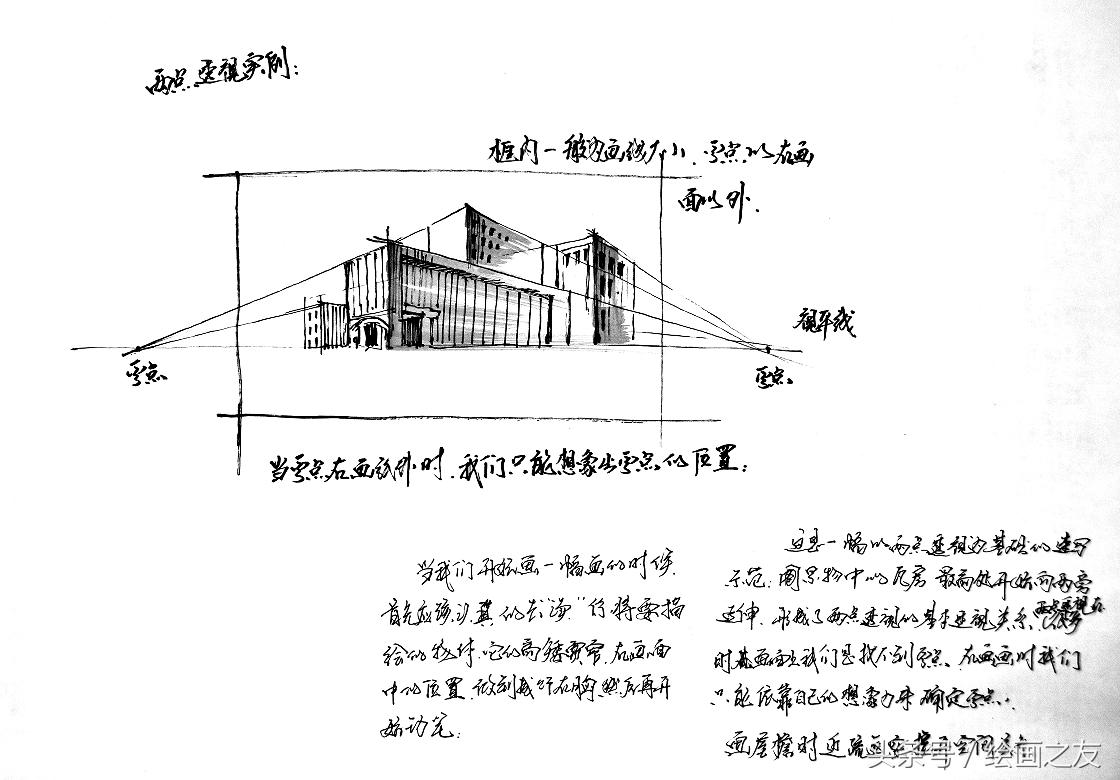 两点透视实例:
框内一般为画纸大小.灭点以在画
面以外.
视平线
灭点
灭点。
当灭点在画纸外时.我们只能想象出灭点的位置:
当我们开始画一幅画的时候.
首先应该认真的去"读"你将要描
绘的物体.它的高矮宽窄.在画面
中的位置.做到成竹在胸然后再开
始动笔:
这是一幅以两点透视为基础的速写
示范.图景物中以瓦房最高处开始向两旁
延伸.形成了两点透视的基本透视关系.两点透视在
很多
时候画面上我们是找不到灭点.在画画时我们
只能依靠自己的想象力来确定灭点.
画屋檐时近疏远密
空间
头条号/绘画之友